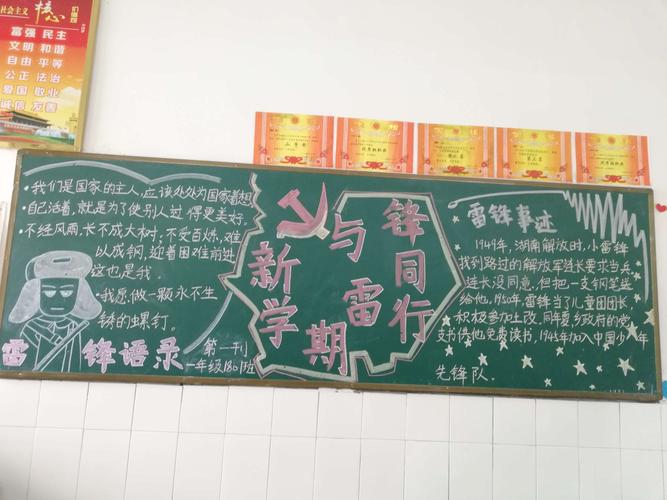 社会主义 核心 价值观
富强 民主
文明 和谐
自由 平等
公正 法治
爱国 敬业
诚信 友善
·我们是国家的主人，应该处处为国家着想
·自己活着，就是为了使别人过得更美好。
·不经风雨，长不成大树；不受百炼，难
以成钢，迎着困难前进
这也是我
·我愿做一颗永不生
锈的螺钉。
雷锋语录
第一刊
一年级1801班
新学期
与雷锋同行
雷锋事迹
1949年，湖南解放时，小雷锋
找到路过的解放军连长要求当兵
连长没同意，但把一支钢笔送
给他，1950年，雷锋当了儿童团团长
积极参加土改，同年夏，乡政府的党
支书供他免费读书，1945年加入中国少年
先锋队。